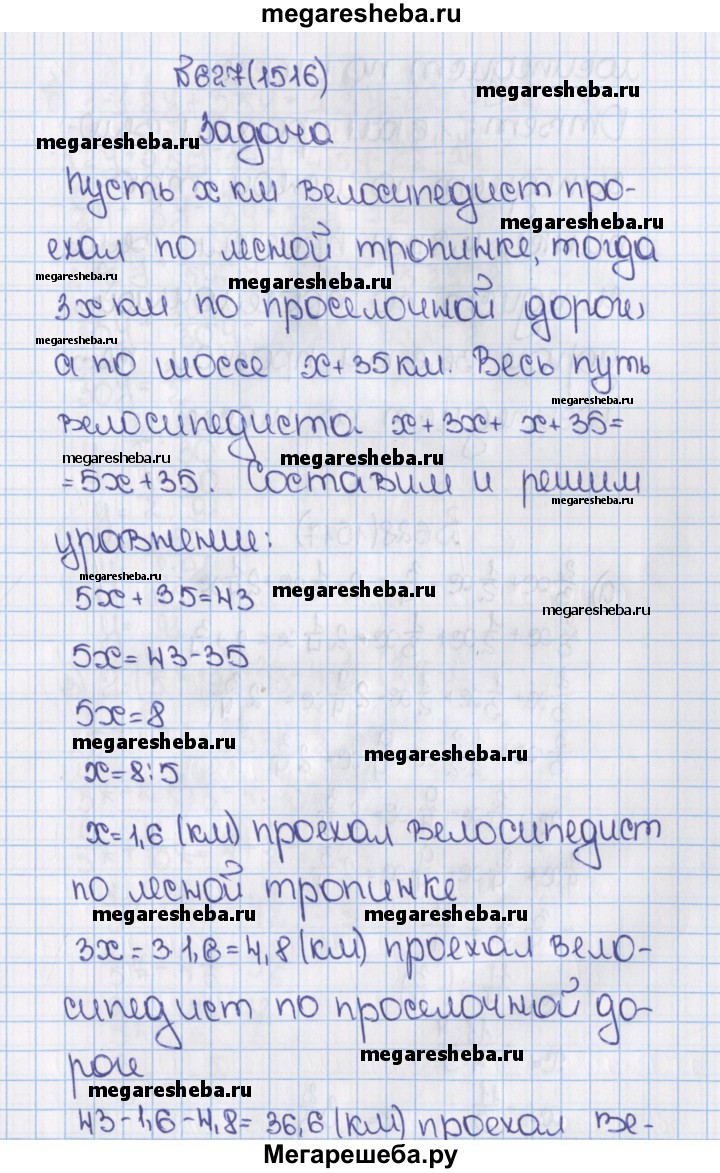 megaresheba.ru
№627(1516)
megaresheba.ru
megaresheba.ru
Задача
Пусть х км велосипедист про-
megaresheba.ru
ехал по лесной тропинке, тогда
megaresheba.ru
megaresheba.ru
3х км по проселочной дороге,
megaresheba.ru
а по шоссе х+35км. Весь путь
megaresheba.ru
велосипедиста х+3х+ х+35=
megaresheba.ru
megaresheba.ru
=5х+35. Составим и решим
megaresheba.ru
уравнение:
megaresheba.ru
megaresheba.ru
5х+35=43
megaresheba.ru
5х=43-35
5х=8
megaresheba.ru
megaresheba.ru
х=8:5
х=1,6 (км) проехал велосипедист
по лесной тропинке
megaresheba.ru
megaresheba.ru
3х=3·1,6=4,8(км) проехал вело-
сипедист по проселочной до-
megaresheba.ru
роге
megaresheba.ru
43-1,6-4,8=36,6(км) проехал ве-
Мегарешеба.ру